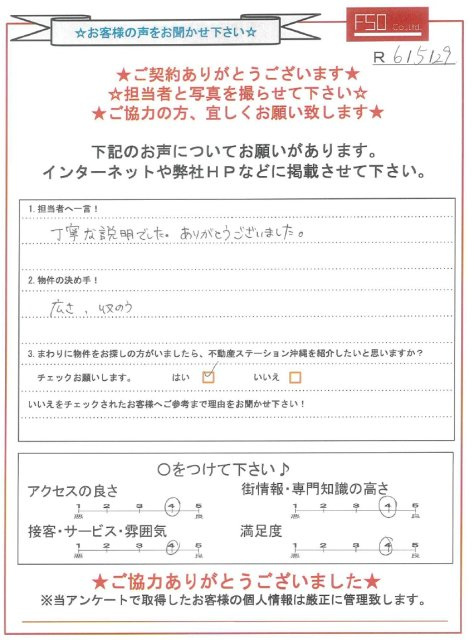 ☆お客様の声をお聞かせ下さい☆
FSO Co.,Ltd.
R 6/5/29
★ご契約ありがとうございます★
☆担当者と写真を撮らせて下さい☆
★ご協力の方、宜しくお願い致します★
下記のお声についてお願いがあります。
インターネットや弊社HPなどに掲載させて下さい。
1. 担当者へ一言！
丁寧な説明でした。ありがとうございました。
2. 物件の決め手！
広さ、収のう
3. まわりに物件をお探しの方がいましたら、不動産ステーション沖縄を紹介したいと思いますか？
チェックお願いします。 はい ☑ いいえ □
いいえをチェックされたお客様へご参考まで理由をお聞かせ下さい！
〇をつけて下さい♪
アクセスの良さ 街情報・専門知識の高さ
1 2 3 4 5 1 2 3 4 5
悪 良 悪 良
接客・サービス・雰囲気 満足度
1 2 3 4 5 1 2 3 4 5
悪 良 悪 良
★ご協力ありがとうございました★
※当アンケートで取得したお客様の個人情報は厳正に管理致します。